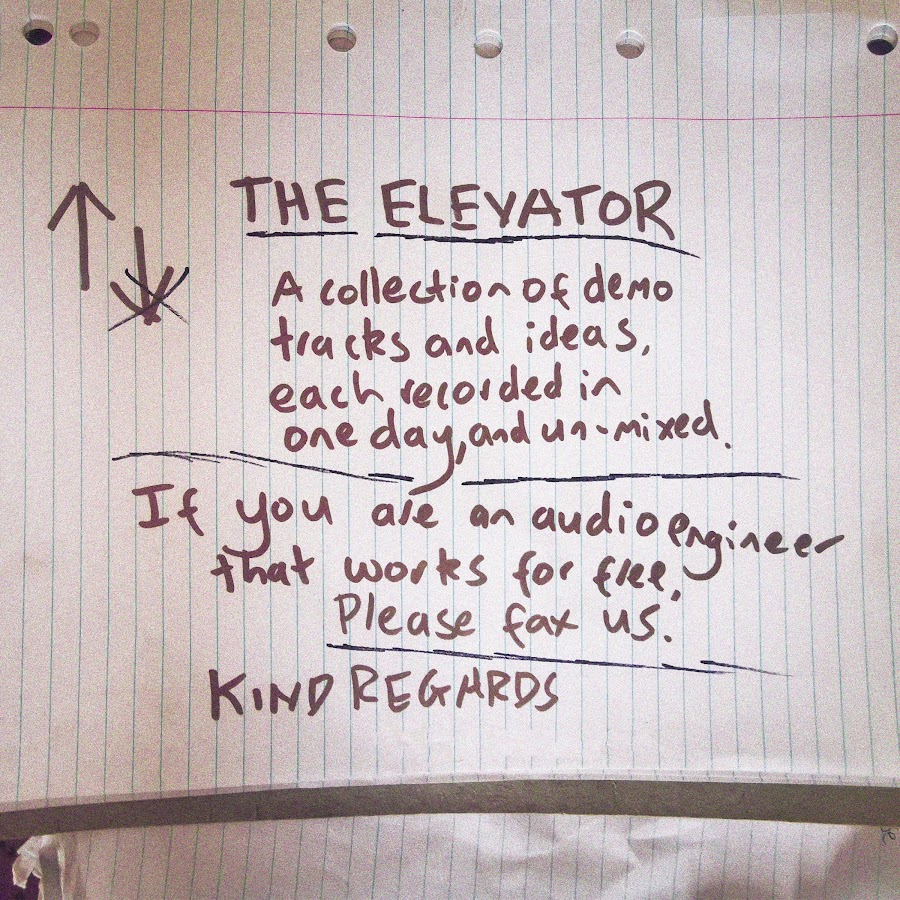 THE ELEVATOR
A collection of demo
tracks and ideas,
each recorded in
one day, and un-mixed.
If you are an audio engineer
that works for free,
Please fax us.
KIND REGARDS